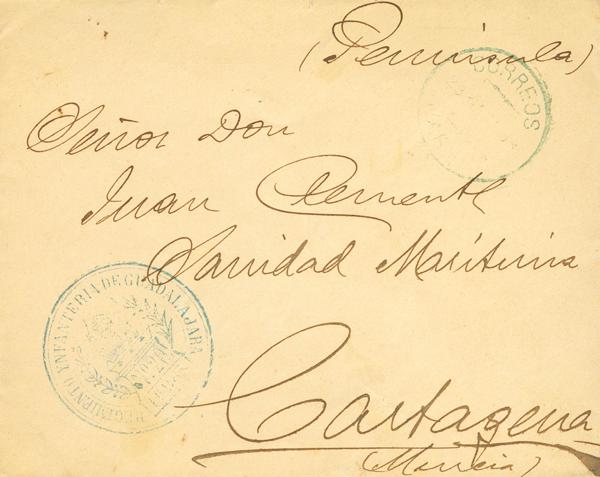 (Peninsula)
CORREOS
Señor Don
Juan Clemente
Sanidad Maritima
REGIMIENTO YNFANTERIA DE GUADALAJARA
Cartagena
(Murcia)